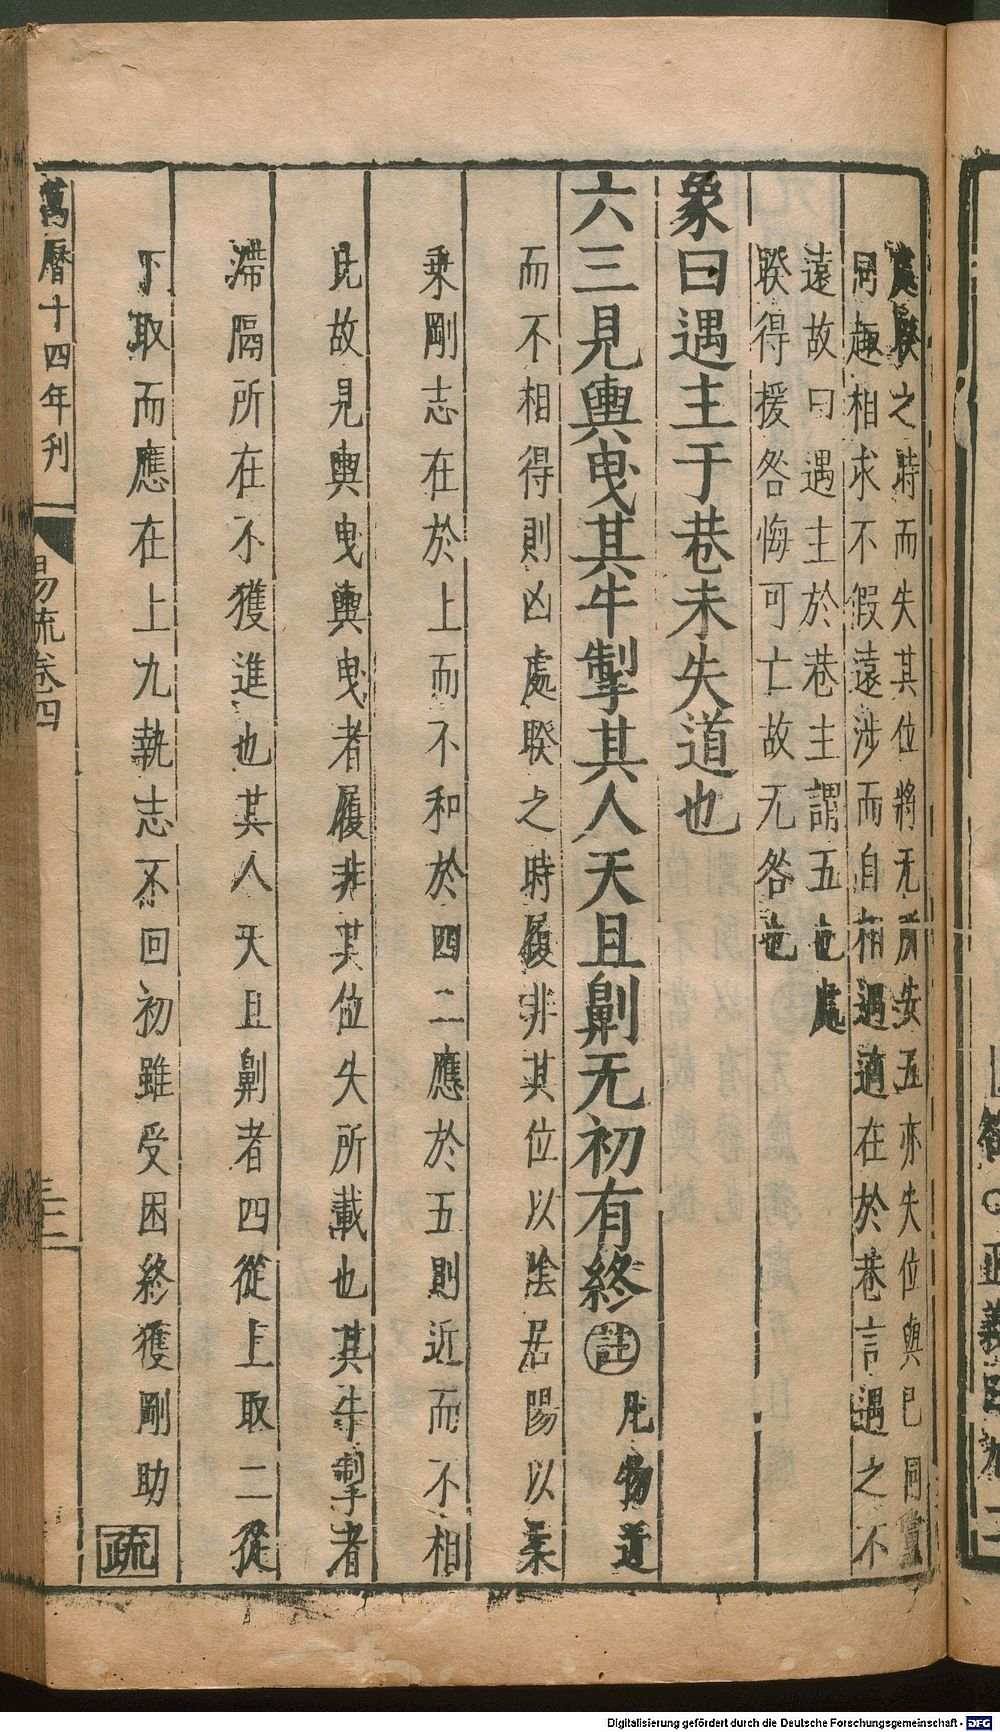 處睽之時而失其位將无所安五亦失位與已同黨
同趣相求不假遠涉而自相遇適在於巷言遇之不
遠故曰遇主於巷主謂五也處
睽得援咎悔可亡故无咎也
象曰遇主于巷未失道也
六三見輿曳其牛掣其人天且劓无初有終註凡物近
而不相得則凶處睽之時履非其位以陰居陽以柔
乘剛志在於上而不和於四二應於五則近而不相
比故見輿曳輿曳者履非其位失所載也其牛掣者
滯隔所在不獲進也其人天且劓者四從上取二從
下取而應在上九執志不回初雖受困終獲剛助疏
萬曆十四年刊
易疏卷四
Digitalisierung gefördert durch die Deutsche Forschungsgemeinschaft - DFG